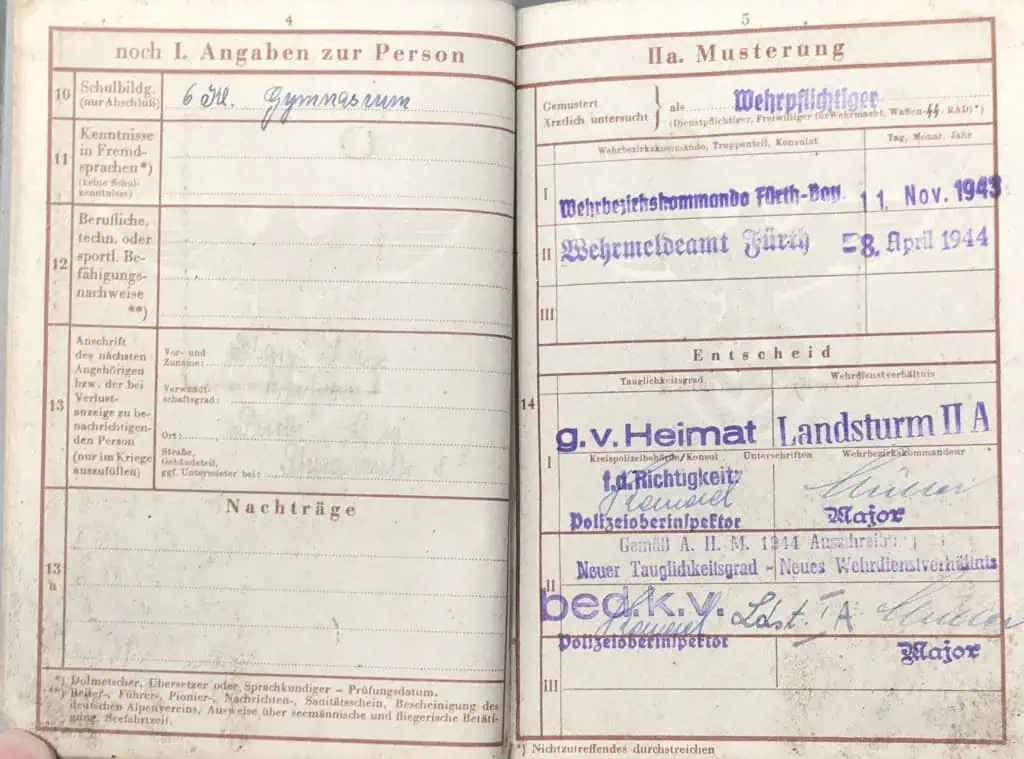 4
noch I. Angaben zur Person
10
Schulbildg.
(nur Abschluß)
6 Kl. Gymnasium
11
Kenntnisse
in Fremd-
sprachen*)
(keine Schul-
kenntnisse)
12
Berufliche,
techn. oder
sportl. Be-
fähigungs-
nachweise
**)
13
Anschrift
des nächsten
Angehörigen
bzw. der bei
Verlust-
anzeige zu be-
nachrichtigen-
den Person
(nur im Kriege
auszufüllen)
Vor- und
Zuname:
Verwandt-
schaftsgrad:
Ort:
Straße,
Gebäudeteil,
ggf. Untermieter bei:
Nachträge
13
a
*) Dolmetscher, Übersetzer oder Sprachkundiger – Prüfungsdatum.
**) Reiter-, Führer-, Pionier-, Nachrichten-, Sanitätsschein, Bescheinigung des
deutschen Alpenvereins, Ausweise über seemännische und fliegerische Betäti-
gung, Seefahrtzeit.
5
IIa. Musterung
Gemustert
Ärztlich untersucht
als
Wehrpflichtiger
(Dienstpflichtiger, Freiwilliger für Wehrmacht, Waffen-SS RAD)*)
Wehrbezirkskommando, Truppenteil, Konsulat
Tag, Monat, Jahr
I
Wehrbezirkskommando Fürth-Bay.
11. Nov. 1943
II
Wehrmeldeamt Fürth
-8. April 1944
III
Entscheid
14
Tauglichkeitsgrad
Wehrdienstverhältnis
I
g.v. Heimat
Landsturm II A
Kreispolizeibehörde/Konsul
Unterschriften
Wehrbezirkskommandeur
f.d. Richtigkeit:
Polizeioberinspektor
Major
Gemäß A. H. M. 1944
Neuer Tauglichkeitsgrad – Neues Wehrdienstverhältnis
II
bed. k.v.
Ldst. I A
Polizeioberinspektor
Major
III
*) Nichtzutreffendes durchstreichen